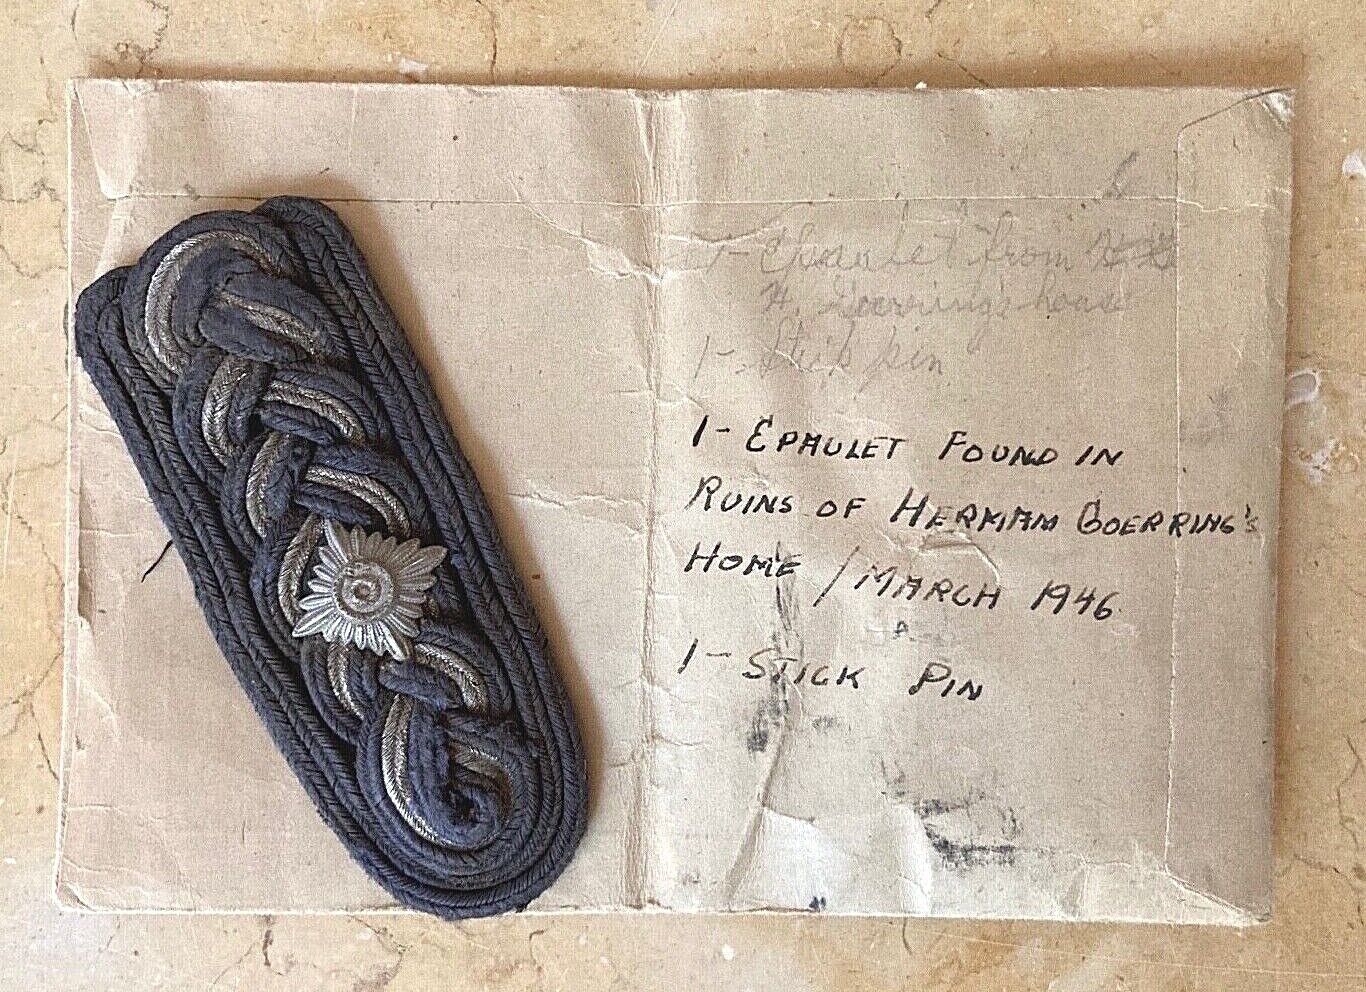 1- Epaulet from
H. Goerring's house
1- Stick pin
1- EPAULET FOUND IN
RUINS OF HERMAN GOERRING'S
HOME / MARCH 1946
1- STICK PIN